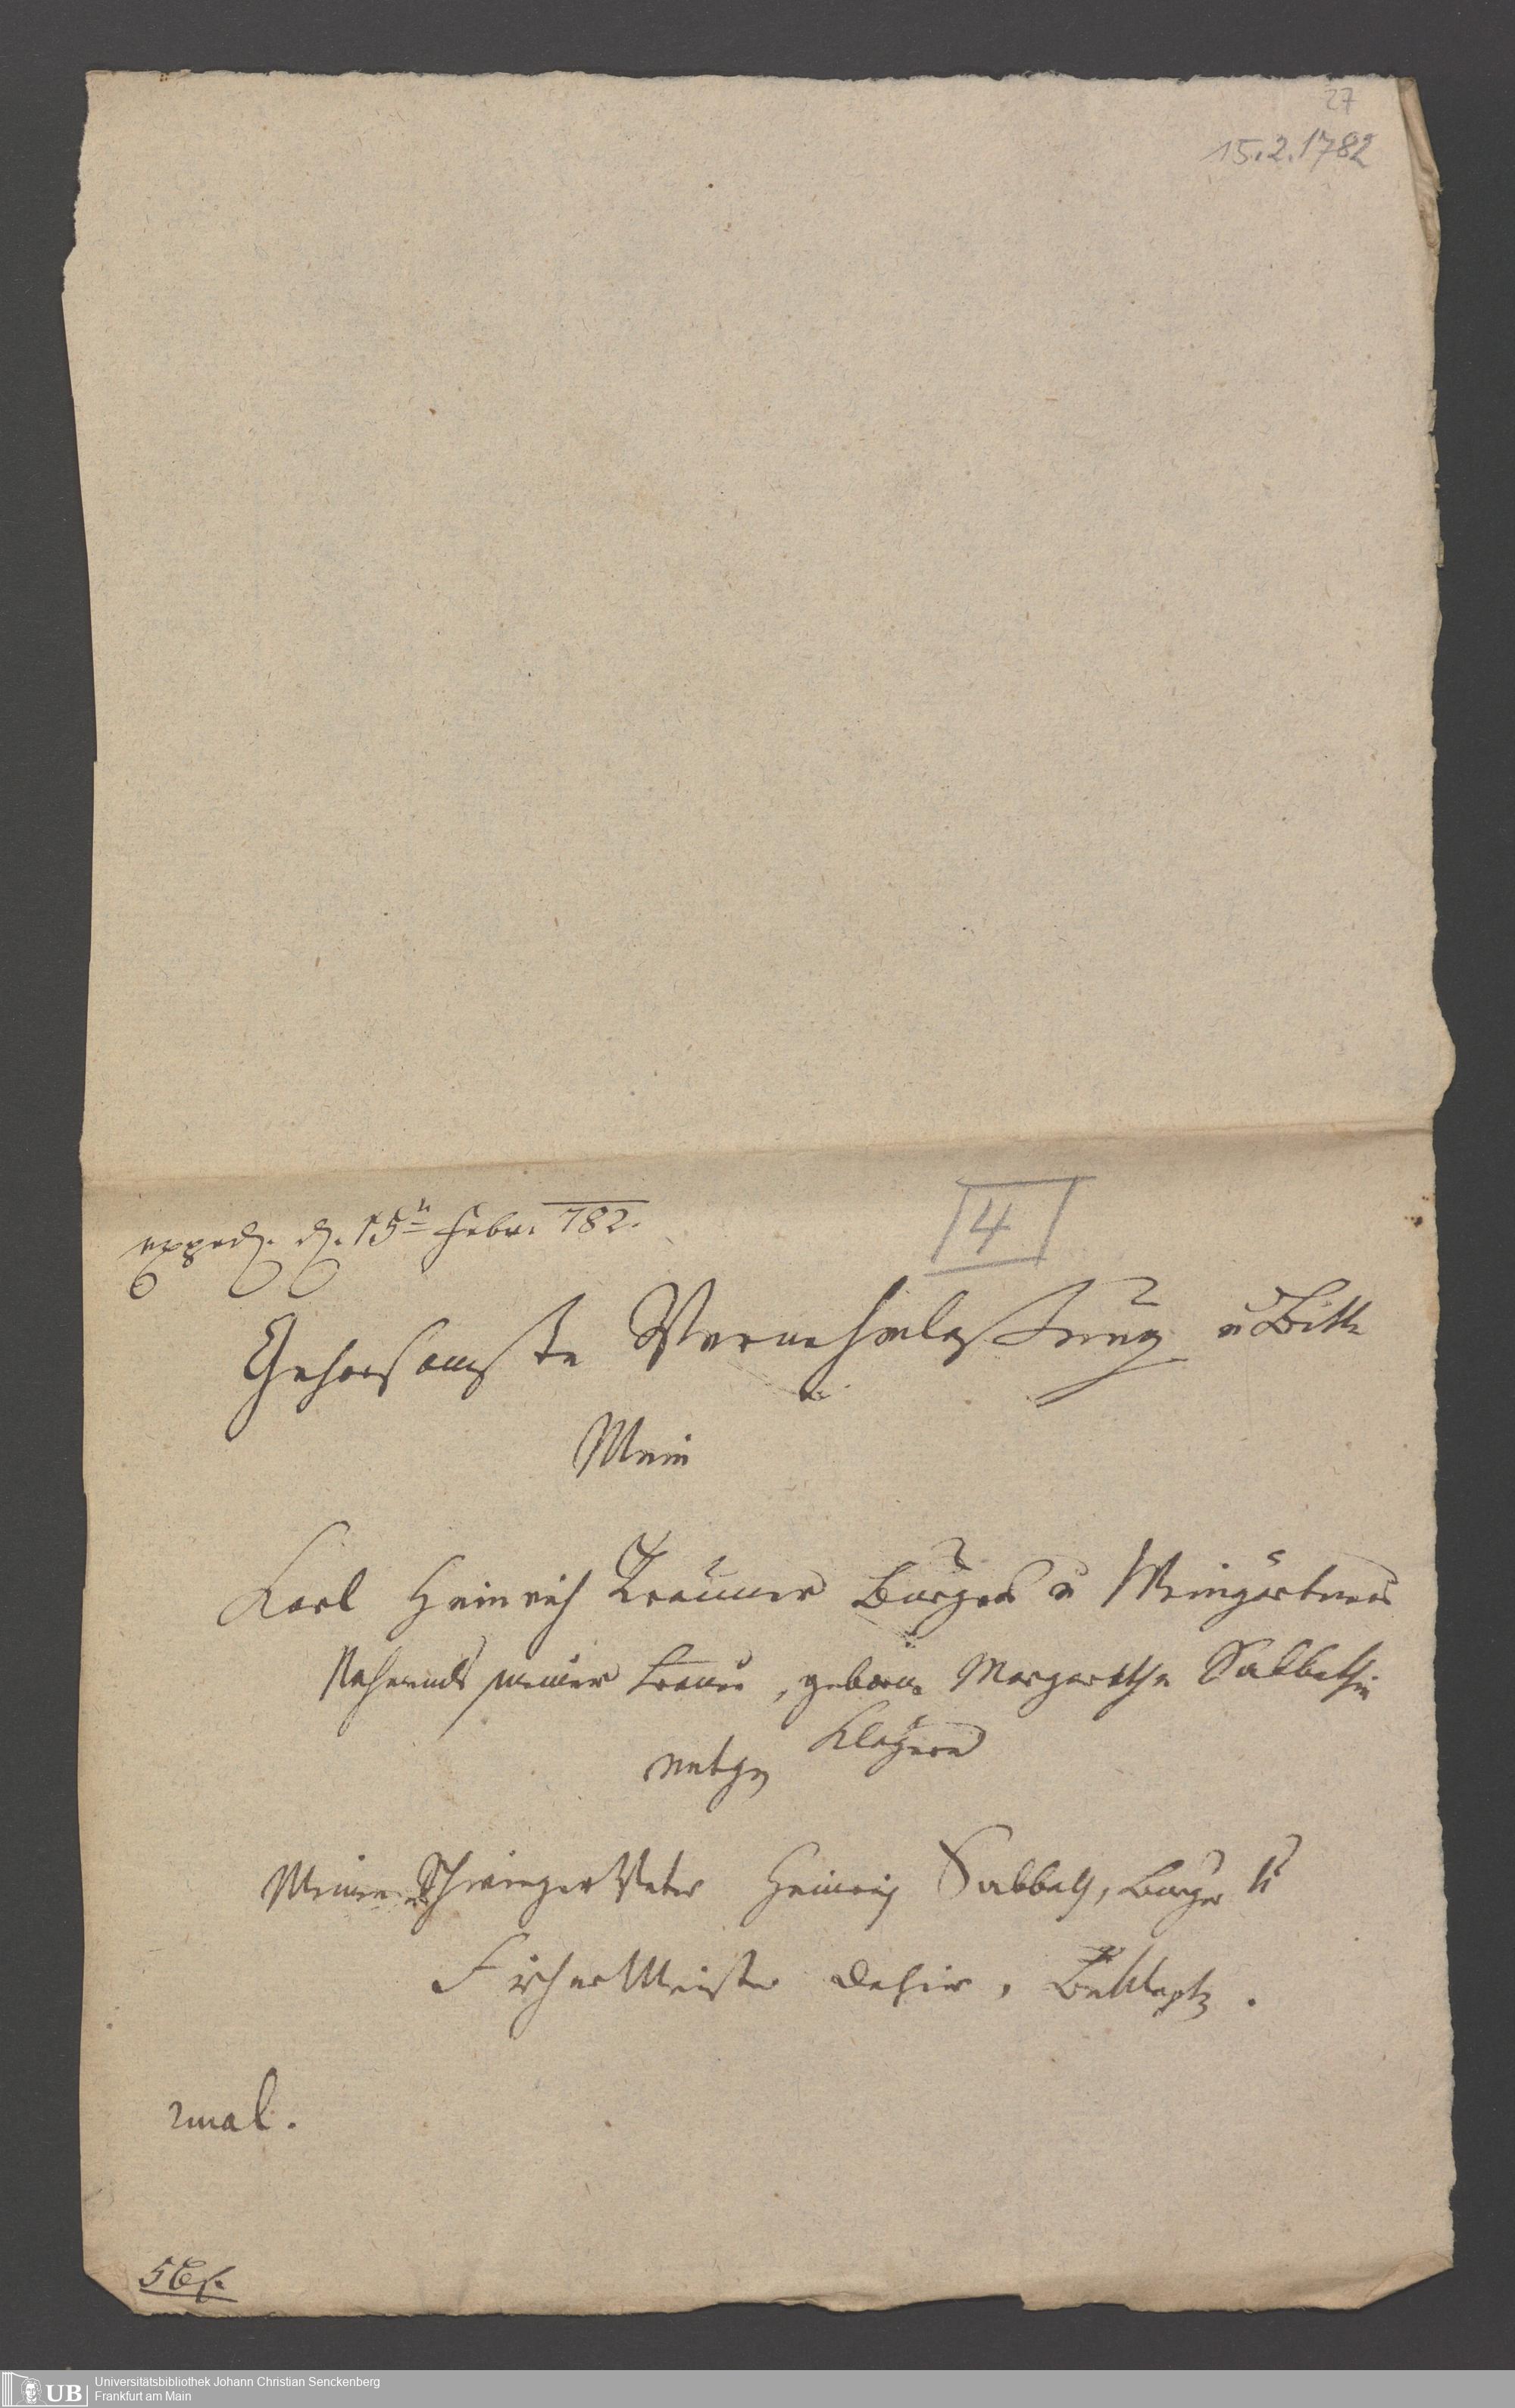 27
15.2.1782
exped. d. 15n Febr. 782.
4
Gehorsamste Vernehmlassung u Bitte
Mein
Karl Heinrich Trauner Burgers u Weingärtners
Nahmens meiner Frauen, geborne Margaretha Sabbathin
Klägern
entgg
Meinen Schwieger Vater Heinrich Sabbath, Burger u
FischerMeister dahier, Beklagten.
2mal.
UB
Universitätsbibliothek Johann Christian Senckenberg
Frankfurt am Main